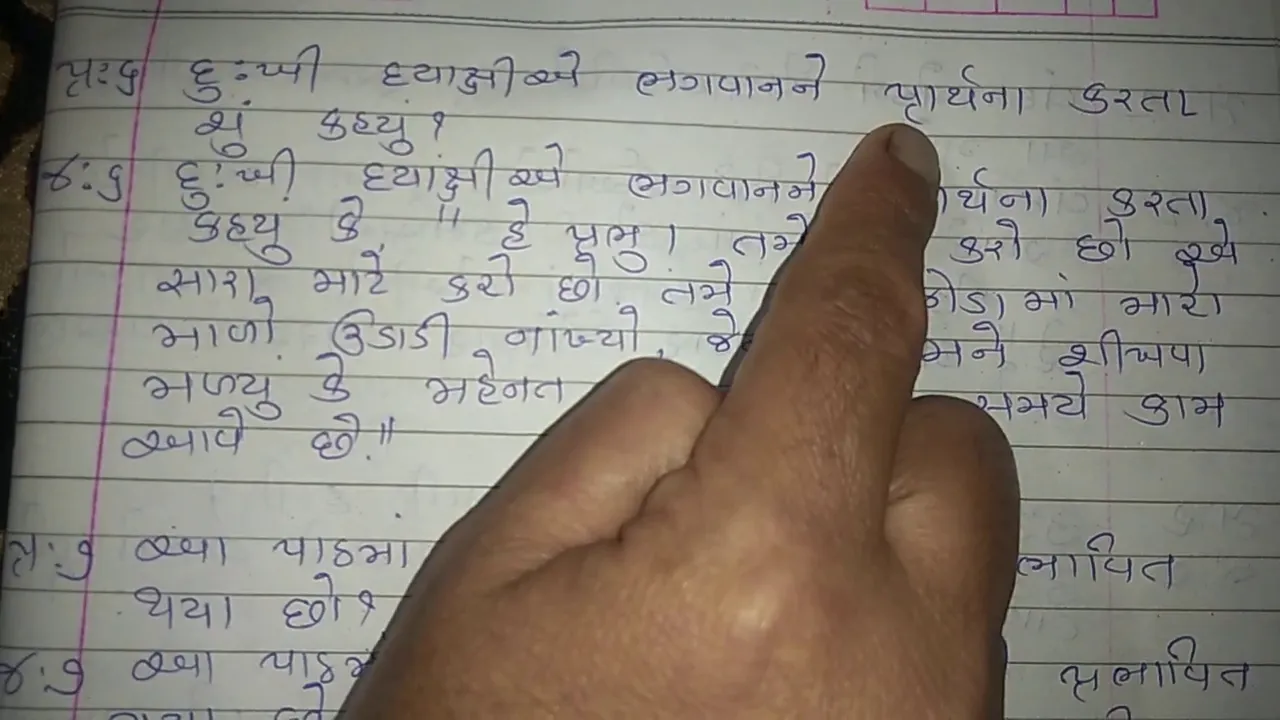 પ્ર:૬ દુ:ખી ધ્યાક્ષીએ ભગવાનને પ્રાર્થના કરતા
શું કહ્યું?
જ:૬ દુ:ખી ધ્યાક્ષીએ ભગવાનને ર્થના કરતા
કહ્યુ કે " હે પ્રભુ! તમે કરો છો એ
સારા માટે કરો છો. તમે માં મારો
માળો ઉડાડી નાંખ્યો, મને શીખવા
મળ્યુ કે મહેનત સમયે કામ
આવે છે."
પ્ર:૭ આ પાઠમાં ભાવિત
થયા છો?
જ:૭ આ પ્રભાવિત